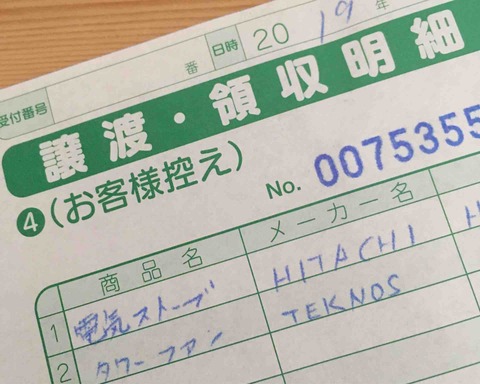 受付番号 番 日時 2019年
譲渡・領収明細
❹(お客様控え) No. 0075355
商品名 メーカー名
1 電気ストーブ HITACHI
2 タワーファン TEKNOS